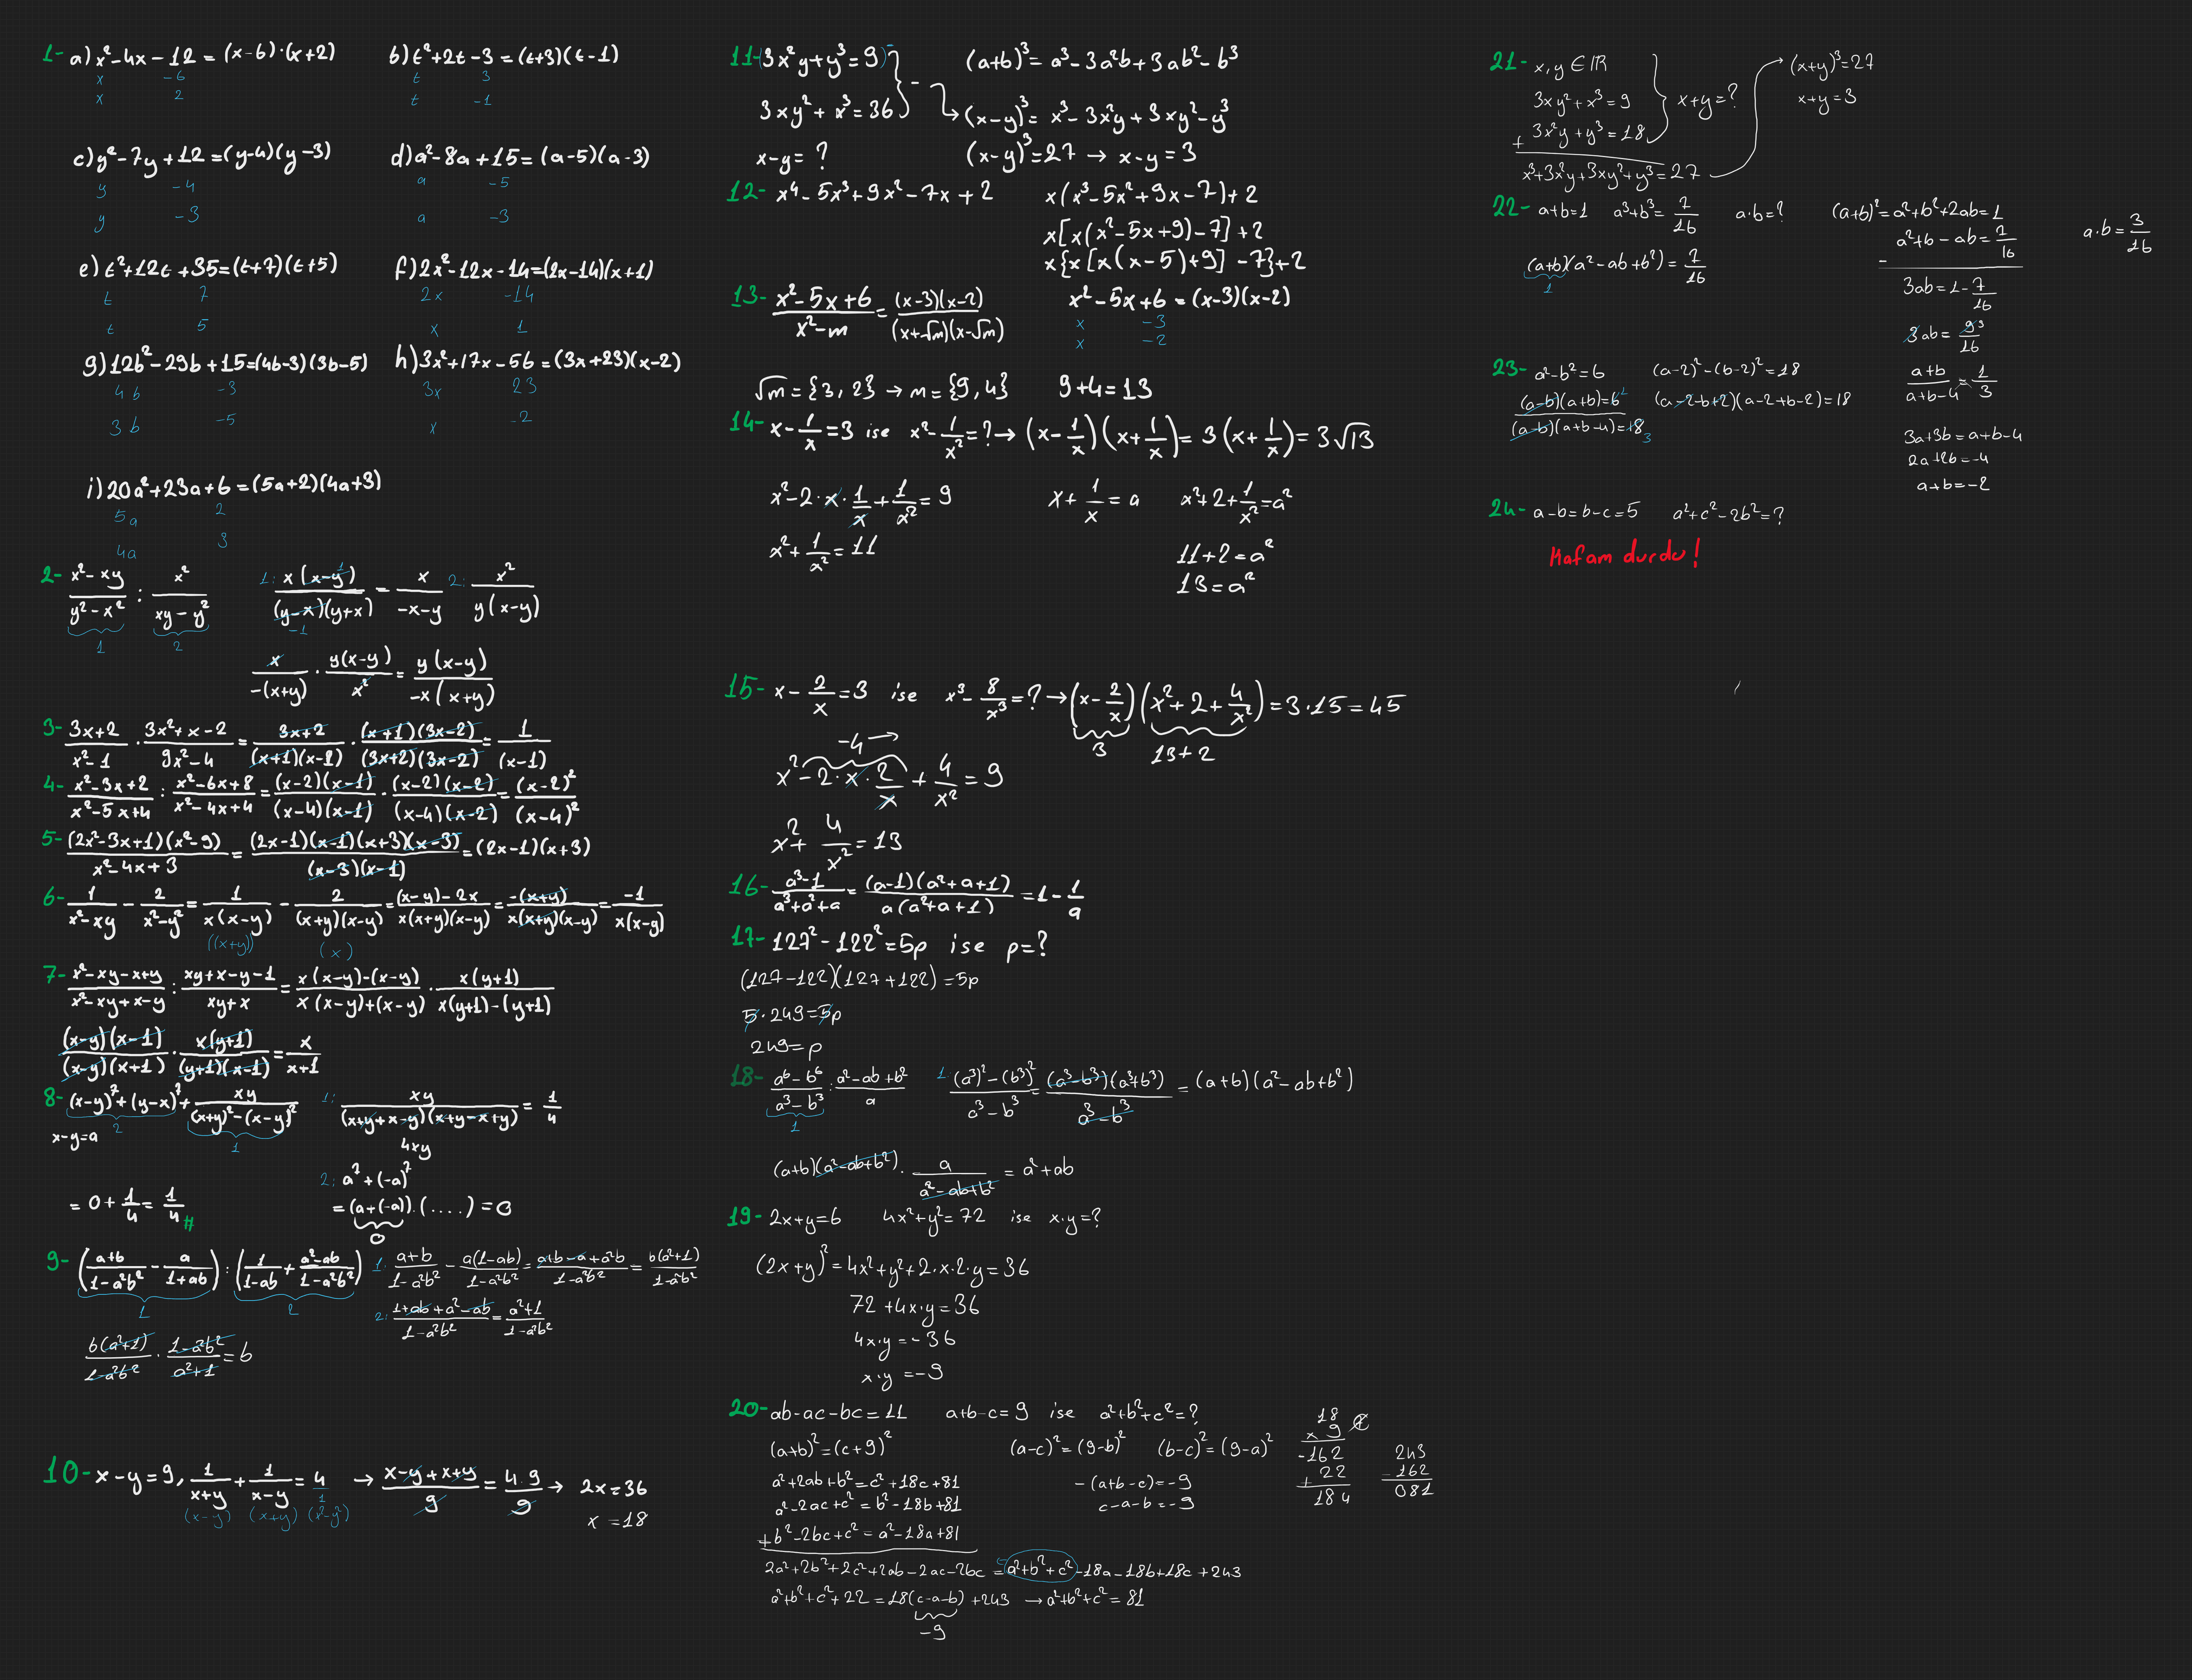 1- a) x²-4x-12 = (x-6)·(x+2)
x -6
x 2
b) t²+2t-3 = (t+3)(t-1)
t 3
t -1
c) y²-7y+12 = (y-4)(y-3)
y -4
y -3
d) a²-8a+15 = (a-5)(a-3)
a -5
a -3
e) t²+12t+35 = (t+7)(t+5)
t 7
t 5
f) 2x²-12x-14 = (2x-14)(x+1)
2x -14
x 1
g) 12b²-29b+15 = (4b-3)(3b-5)
4b -3
3b -5
h) 3x²+17x-56 = (3x+23)(x-2)
3x 23
x -2
i) 20a²+23a+6 = (5a+2)(4a+3)
5a 2
4a 3
2- (x²-xy)/(y²-x²) : x²/(xy-y²)
1 2
1: x(x-y)/((y-x)(y+x)) = x/(-x-y) 2: x²/(y(x-y))
1 -1
x/(-(x+y)) · y(x-y)/x² = y(x-y)/(-x(x+y))
3- (3x+2)/(x²-1) · (3x²+x-2)/(9x²-4) = (3x+2)/((x+1)(x-1)) · ((x+1)(3x-2))/((3x+2)(3x-2)) = 1/(x-1)
4- (x²-3x+2)/(x²-5x+4) : (x²-6x+8)/(x²-4x+4) = ((x-2)(x-1))/((x-4)(x-1)) · ((x-2)(x-2))/((x-4)(x-2)) = (x-2)²/(x-4)²
5- ((2x²-3x+1)(x²-9))/(x²-4x+3) = ((2x-1)(x-1)(x+3)(x-3))/((x-3)(x-1)) = (2x-1)(x+3)
6- 1/(x²-xy) - 2/(x²-y²) = 1/(x(x-y)) - 2/((x+y)(x-y)) = ((x-y)-2x)/(x(x+y)(x-y)) = -(x+y)/(x(x+y)(x-y)) = -1/(x(x-y))
((x+y)) (x)
7- (x²-xy-x+y)/(x²-xy+x-y) : (xy+x-y-1)/(xy+x) = (x(x-y)-(x-y))/(x(x-y)+(x-y)) · x(y+1)/(x(y+1)-(y+1))
((x-y)(x-1))/((x-y)(x+1)) · x(y+1)/((y+1)(x-1)) = x/(x+1)
8- (x-y)⁷+(y-x)⁷ + xy/((x+y)²-(x-y)²)
2 1
x-y=a
1: xy/((x+y+x-y)(x+y-x+y)) = 1/4
4xy
2: a⁷+(-a)⁷
= (a+(-a))·(....) = 0
0
= 0+1/4 = 1/4 #
9- ((a+b)/(1-a²b²) - a/(1+ab)) : (1/(1-ab) + (a²-ab)/(1-a²b²))
1 2
1: (a+b)/(1-a²b²) - a(1-ab)/(1-a²b²) = (a+b-a+a²b)/(1-a²b²) = b(a²+1)/(1-a²b²)
2: (1+ab+a²-ab)/(1-a²b²) = (a²+1)/(1-a²b²)
b(a²+1)/(1-a²b²) · (1-a²b²)/(a²+1) = b
10- x-y=9, 1/(x+y) + 1/(x-y) = 4/1 → (x-y+x+y)/9 = 4·9/9 → 2x=36
(x-y) (x+y) (x²-y²)
x=18
11- (3x²y+y³=9)-
3xy²+x³=36
x-y=?
(a+b)³ = a³-3a²b+3ab²-b³
- → (x-y)³ = x³-3x²y+3xy²-y³
(x-y)³=27 → x-y=3
12- x⁴-5x³+9x²-7x+2
x(x³-5x²+9x-7)+2
x[x(x²-5x+9)-7]+2
x{x[x(x-5)+9]-7}+2
13- (x²-5x+6)/(x²-m) = ((x-3)(x-2))/((x+√m)(x-√m))
x²-5x+6 = (x-3)(x-2)
x -3
x -2
√m={3,2} → m={9,4} 9+4=13
14- x-1/x=3 ise x²-1/x²=? → (x-1/x)(x+1/x) = 3(x+1/x) = 3√13
x²-2·x·1/x+1/x²=9
x²+1/x²=11
x+1/x=a x²+2+1/x²=a²
11+2=a²
13=a²
15- x-2/x=3 ise x³-8/x³=? → (x-2/x)(x²+2+4/x²) = 3·15 = 45
3 13+2
-4 →
x²-2·x·2/x+4/x²=9
x²+4/x²=13
16- (a³-1)/(a³+a²+a) = ((a-1)(a²+a+1))/(a(a²+a+1)) = 1-1/a
17- 127²-122²=5p ise p=?
(127-122)(127+122)=5p
5·249=5p
249=p
18- (a⁶-b⁶)/(a³-b³) : (a²-ab+b²)/a
1
1: ((a³)²-(b³)²)/(a³-b³) = ((a³-b³)(a³+b³))/(a³-b³) = (a+b)(a²-ab+b²)
(a+b)(a²-ab+b²)· a/(a²-ab+b²) = a²+ab
19- 2x+y=6 4x²+y²=72 ise x·y=?
(2x+y)²=4x²+y²+2·x·2·y=36
72+4x·y=36
4x·y=-36
x·y=-9
20- ab-ac-bc=11 a+b-c=9 ise a²+b²+c²=?
(a+b)²=(c+9)² (a-c)²=(9-b)² (b-c)²=(9-a)²
a²+2ab+b²=c²+18c+81
a²-2ac+c²=b²-18b+81
+b²-2bc+c²=a²-18a+81
2a²+2b²+2c²+2ab-2ac-2bc = a²+b²+c²-18a-18b+18c+243
a²+b²+c²+22=18(c-a-b)+243 → a²+b²+c²=81
-9
-(a+b-c)=-9
c-a-b=-9
18
x 9
-162
+ 22
184
243
-162
081
21- x,y∈IR
3xy²+x³=9
+ 3x²y+y³=18
x³+3x²y+3xy²+y³=27
x+y=?
(x+y)³=27
x+y=3
22- a+b=1 a³+b³=7/16 a·b=?
(a+b)(a²-ab+b²)=7/16
1
(a+b)²=a²+b²+2ab=1
- a²+b-ab=7/16
3ab=1-7/16
3ab=9/16 3
a·b=3/16
23- a²-b²=6 (a-2)²-(b-2)²=18
(a-b)(a+b)=6 (a-2-b+2)(a-2+b-2)=18
(a-b)(a+b-4)=18 3
(a+b)/(a+b-4)=1/3
3a+3b=a+b-4
2a+2b=-4
a+b=-2
24- a-b=b-c=5 a²+c²-2b²=?
Kafam durdu!